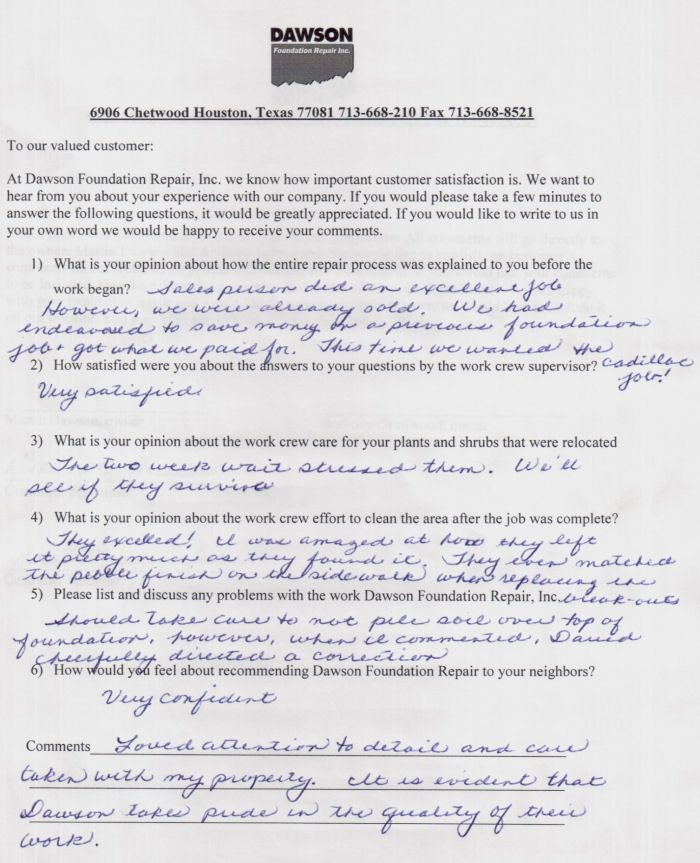 DAWSON
Foundation Repair Inc.
6906 Chetwood Houston, Texas 77081 713-668-210 Fax 713-668-8521
To our valued customer:
At Dawson Foundation Repair, Inc. we know how important customer satisfaction is. We want to
hear from you about your experience with our company. If you would please take a few minutes to
answer the following questions, it would be greatly appreciated. If you would like to write to us in
your own word we would be happy to receive your comments.
1) What is your opinion about how the entire repair process was explained to you before the
work began? Sales person did an excellent job
However, we were already sold. We had
endeavored to save money on a previous foundation
job + got what we paid for. This time we wanted the
cadillac job!
2) How satisfied were you about the answers to your questions by the work crew supervisor?
Very satisfied
3) What is your opinion about the work crew care for your plants and shrubs that were relocated
The two week wait stressed them. We'll
see if they survive
4) What is your opinion about the work crew effort to clean the area after the job was complete?
They excelled! I was amazed at how they left
it pretty much as they found it. They even matched
the pebble finish on the sidewalk when replacing the
break-outs
5) Please list and discuss any problems with the work Dawson Foundation Repair, Inc.
Should take care to not pile soil over top of
foundation, however, when I commented, David
cheerfully directed a correction
6) How would you feel about recommending Dawson Foundation Repair to your neighbors?
Very confident
Comments Loved attention to detail and care
taken with my property. It is evident that
Dawson takes pride in the quality of their
work.